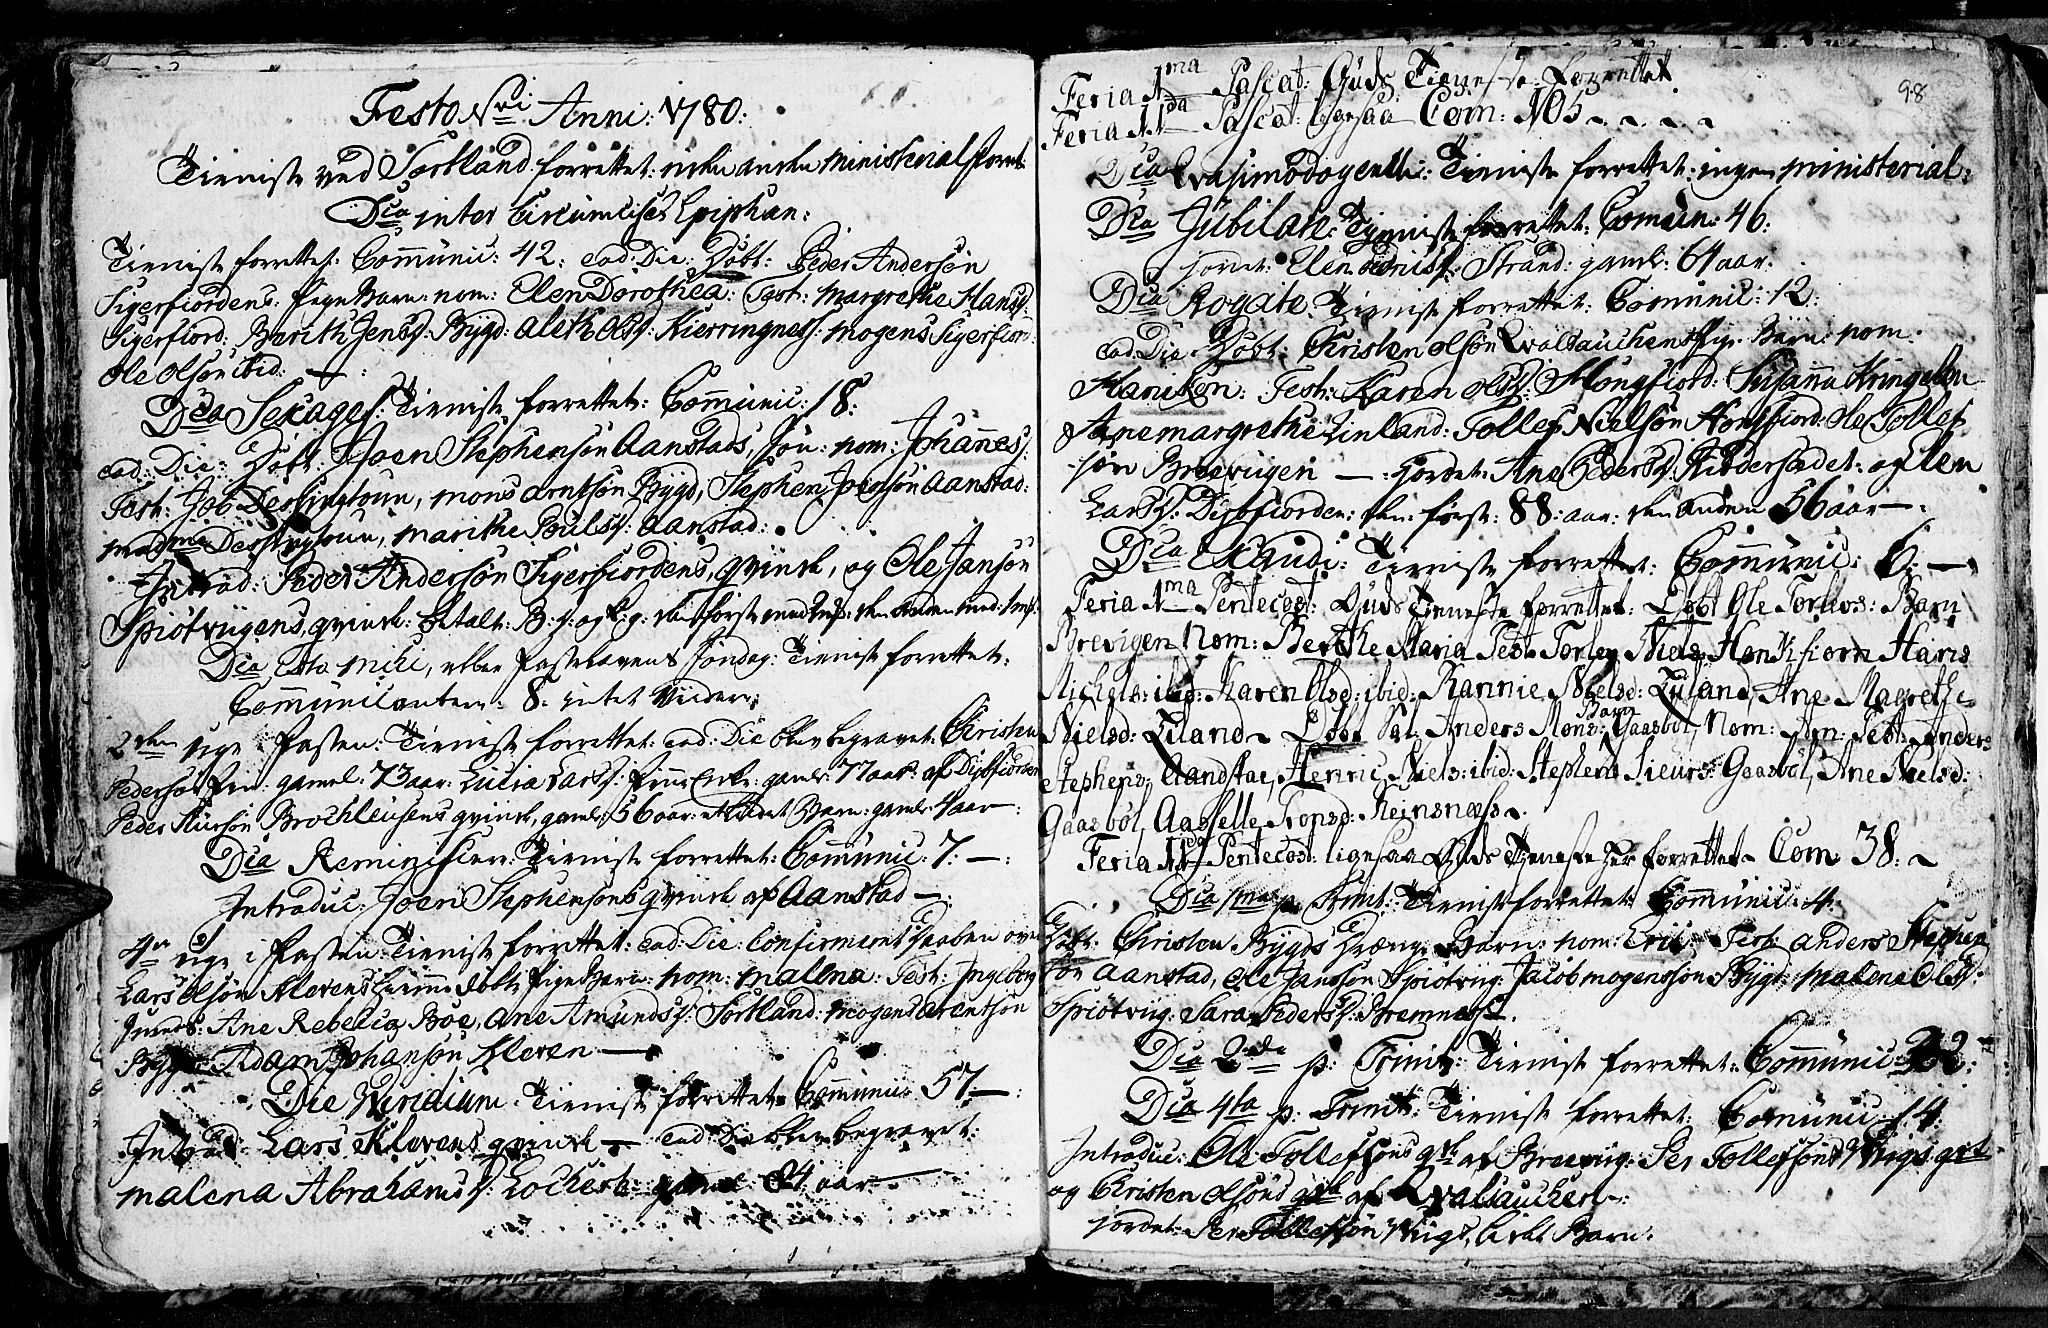 Festo Nvi Anni: 1780:
Tieniste ved Sortland forrettet: uden anden ministerial forret:
Dca inter Circumcis: & Epiphan:
Tieniste forrettet: Communic: 42: ead: Die: Døbt: Peder Andersøn
Sigerfiordens: Pige Barn: nom: Elen Dorothea: Test: Margrethe Hansd:
Sigerfiord: Berith Jensd: Bygd: Aleth Olsd: Kierringnes: Mogens Sigerfiord:
Ole Olsøn ibid: —
Dca Sexages: Tieniste forrettet: Communic: 18:
ead: Die: Døbt: Joen Stephensøn Aanstads, Søn: nom: Johannes:
Test: Job Dessingtoun, Mons Arntsøn Bygd, Stephen Joensøn Aanstad:
madme Dessingtoun, Marithe Poulsd: Aanstad:
Introd: Peder Andersøn Sigerfiordens, qvinde, og Ole Jansøn
Spiotviigens, qvinde: betalt:
Dca Esto mihi, eller Fastelavens Søndag: Tieniste forrettet:
Communicantern: 8: intet viidere:
2den uge i Fasten: Tieniste forrettet: ead: Die blev begravet: Christen
Pedersøn gamel: 73 aar: Lucia Larsd: gaml: 77 aar: af Digbfiorden
Peder Siursøn Brochløusens qvinde, gaml: 56 aar: et lidet Barn: gaml: 4 aar:
Dca Reminiscere: Tieniste forrettet: Communic: 7: —:
Introduc: Joen Stephensøns qvinde af Aanstad —:
4de uge i Fasten: Tieniste forrettet: ead: Die: Confirmeret Daaben over
Lars Olsøn Klevens hiemme døbt Pige Barn: nom: Malena: Test: Ingeborg
Ane Rebecca Bøe, Ane Amundsd: Sortland: Mogens Arentsøn
Bygd: Adam Johansøn Kleven —
Die Viridium: Tieniste forrettet: Communic: 57 —:
Introd: Lars Klevens qvinde — ead: Die blev begravet:
Malena Abrahamsd: Lochert: gamel 84 aar —
98
Feria 1ma Pascat: Guds Tieneste forrettet
Feria IIda Pascat: ligesaa Com: 105
Dca Qvasimodogeniti: Tieniste forrettet: ingen ministerial:
Dca Jubilate: Tieniste forrettet: Comun: 46:
jordet: Elen Strand: gaml: 64 aar:
Dca Rogate: Tieniste forrettet: Comunic: 12:
ead: Die: Døbt: Christen Olsøn Qvalsauchens Pige Barn: nom:
Maricken: Test: Karen Olsd: Hongfiord: Susanna Kringelen
Anemargrethe Zinland: Tollef Nielsøn Hongfiord: Ole Tollef
søn Breevigen —: Jordet: Ane Pedersd: og Elen
Larsd: Digbfiorden: den: først: 88: aar: den anden 56 aar —:
Dca Exaudi: Tieniste forrettet: Communic: 6: —
Feria 1ma Pentecost: Guds Tieneste forrettet: Døbt Ole Torlevs: Barn
Brevigen Nom: Berthe Maria Test: Torlev Niels: Honkfiorn Hans
Michels: ibid: Karen Olsd: ibid: Rannie Nielsd: Ziland, Ane Magrethe
Nielsd: Ziland. Døbt Sal: Anders Mons: Barn Gaasbol, Nom: An: Test: Anders
Stephens: Aandstae, Henric Niels: ibid: Stephens Sieurs: Gaasbol, Ane Nielsd:
Gaasbol, Aasselle Tonsd: Reinsnæss.
Feria IIda Pentecost: ligesaa Guds Tjeneste her forrettet. Com: 38:
Dca 1ma p: Trinit: Tieniste forrettet: Communic: 4:
Døbt: Christen Bygds Dreng Barn: nom: Erik: Test: Anders Stephen
søn Aanstad, Ole Jansøn Spiotviig: Jacob Mogenssøn Bygd: Malena Olsd:
Spiotviig: Sara Pedersd: Bremnes.
Dca 2da p: Trinit: Tieniste forrettet: Communic:
Dca 4ta p: Trinit: Tieniste forrettet: Comunic: 14:
Introduc: Ole Tollefsøns qde af Breeviig: Per Tollefsøns Wiigs qde
og Christen Olsøns qde af Qvalsauchen:
jordet: Per Tollefsøn Wiigs, lidet Barn: